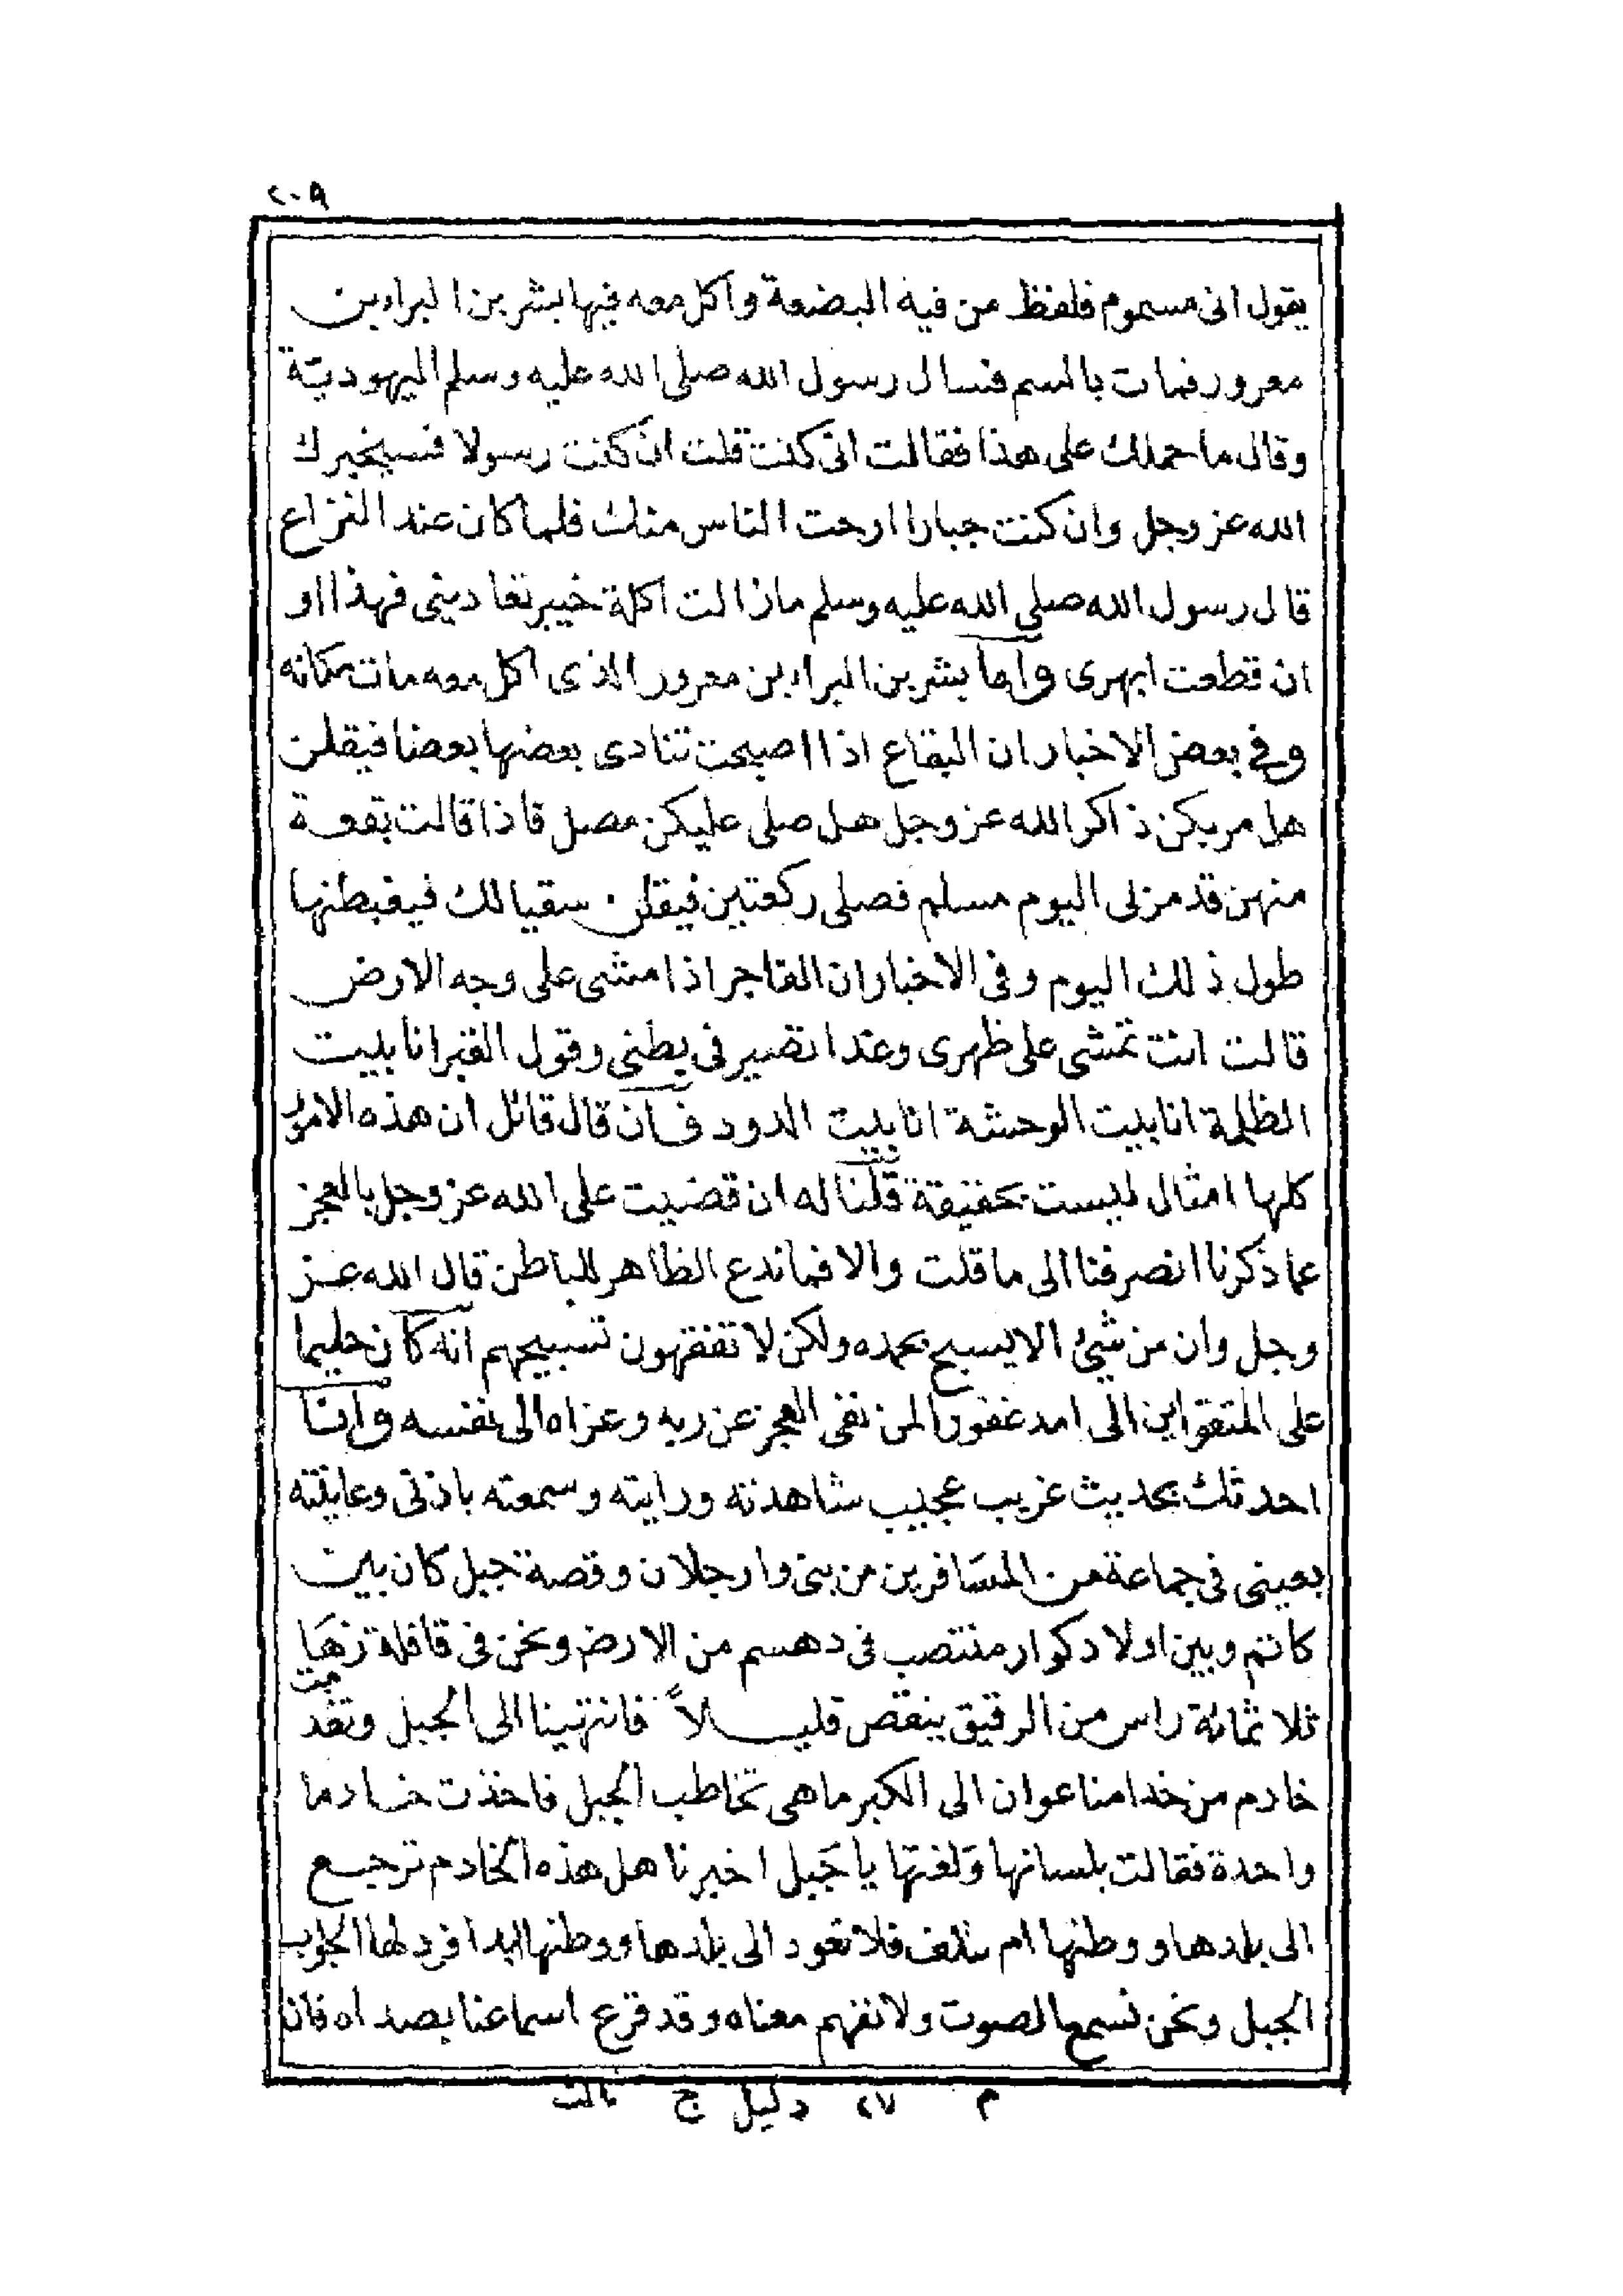 ٢٠٩
يقول انى مسموم فلفظ من فيه البضعة واكل معه فيها بشر بن البراء بن
معرور فمات بالسم فسال رسول الله صلى الله عليه وسلم اليهوديّة
وقال ما حملك على هذا فقالت انى كنت قلت ان كنت رسولا فسيخبرك
الله عز وجل وان كنت جبارا ارحت الناس منك فلما كان عند النزاع
قال رسول الله صلى الله عليه وسلم مازالت اكلة خيبر تعاديني فهذا او
ان قطعت ابهرى واما بشر بن البراء بن معرور الذى اكل معه مات مكانه
وفي بعض الاخبار ان البقاع اذا اصبحت تنادى بعضها بعضا فيقلن
هل مر بكن ذاكر الله عز وجل هل صلى عليكن مصل فاذا قالت بقعة
منهن قد مر لى اليوم مسلم فصلى ركعتين فيقلن سقيا لك فيغبطنها
طول ذلك اليوم وفى الاخبار ان الفاجر اذا مشى على وجه الارض
قالت انت تمشى على ظهرى وغدا تصير فى بطنى وقول القبر انا بيت
الظلمة انا بيت الوحشة انا بيت الدود فان قال قائل ان هذه الامور
كلها امثال ليست بحقيقة قلنا له ان قضيت على الله عز وجل بالعجز
عما ذكرنا انصرفنا الى ما قلت والا فما ندع الظاهر للباطن قال الله عز
وجل وان من شئ الا يسبح بحمده ولكن لا تفقهون تسبيحهم انه كان حليما
على المتقوا اين الى امد غفورا لمن نفى العجز عن ربه وعزاه الى نفسه وانا
احدثك بحديث غريب عجيب شاهدته ورايته وسمعته باذنى وعاينته
بعينى فى جماعة من المسَافرين من بنى وارجلان وقصة جبل كان بين
كاتم وبين اولاد كوار منتصب فى دهسم من الارض ونحن فى قافلة زهَا
ثلاثمائة راس من الرقيق ينقص قليلاً فانتهينا الى الجبل وتقدمت
خادم من خدامنا عوان الى الكبر ما هى تخاطب الجبل فاخذت خادما
واحدة فقالت بلسانها وَلغتها يا جَبل اخبرنا هل هذه الخادم ترجع
الى بلدها ووطنها ام تتلف فلا تعود الى بلدها ووطنها ابدا فرد لها الجواب
الجبل ونحن نسمع الصوت ولا نفهم معناه وقد قرع اسماعنا بصداه فان
م ٢٧ دليل ج ثالث